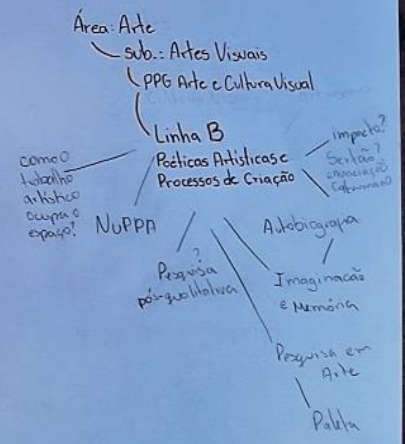 Área: Arte
sub.: Artes Visuais
PPG Arte e Cultura Visual
Linha B
Poéticas Artísticas e
Processos de Criação
como o
trabalho
artístico
ocupa o
espaço?
NuPPA
?
Pesquisa
pós-qualitativa
impacto?
Sertão?
enunciação
Autobiografia
Imaginação
e Memória
Pesquisa em
Arte
Paleta